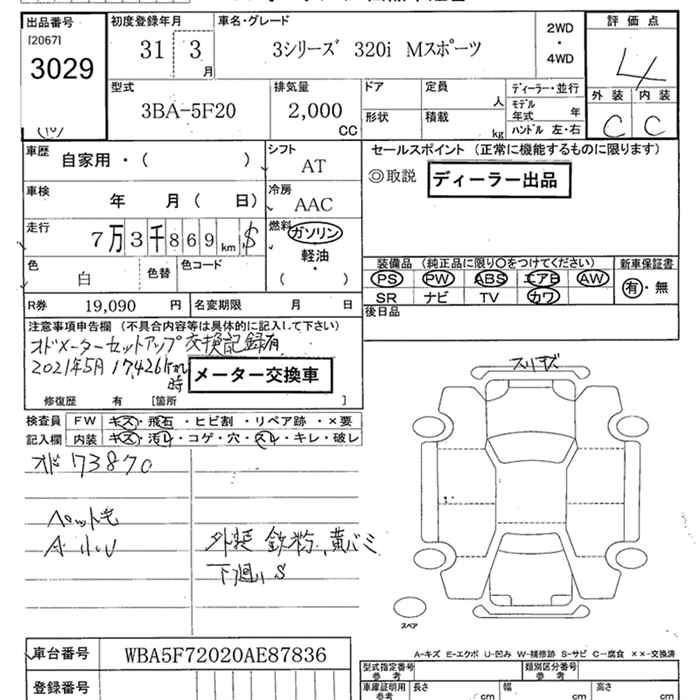 出品番号
[2067]
3029
初度登録年月
31 3
月
車名・グレード
3シリーズ 320i Mスポーツ
2WD
・
4WD
評価点
4
外装 内装
C C
型式
3BA-5F20
排気量
2,000
CC
ドア
定員
人
形状
積載
kg
ディーラー・並行
モデル年式 年
ハンドル 左・右
車歴
自家用・( )
シフト
AT
車検
年 月( 日)
冷房
AAC
走行
7万3千869km $
燃料
ガソリン
軽油
・
( )
色
白
色替
色コード
R券 19,090 円
名変期限 月 日
セールスポイント(正常に機能するものに限ります)
◎取説 ディーラー出品
装備品(純正品に限り○をつけてください)
PS PW ABS エアB AW
SR ナビ TV カワ
新車保証書
有・無
後日品
注意事項申告欄(不具合内容等は具体的に記入して下さい)
オドメーターセットアップ交換記録有
2021年5月 17,426km
時
メーター交換車
修復歴 有 [箇所 ]
検査員記入欄
FW キズ・飛石・ヒビ割・リペア跡・×要
内装 キズ・汚レ・コゲ・穴・スレ・キレ・破レ
オド 73870
ペット毛
A・小U
外装 鉄粉、黄バミ
下廻りS
スリキズ
スペア
A-キズ E-エクボ U-凹み W-補修跡 S-サビ C-腐食 ××-交換済
車台番号 WBA5F72020AE87836
登録番号
型式指定番号
参考
類別区分番号
参考
車庫証明用
参考
長さ cm
幅 cm
高さ cm